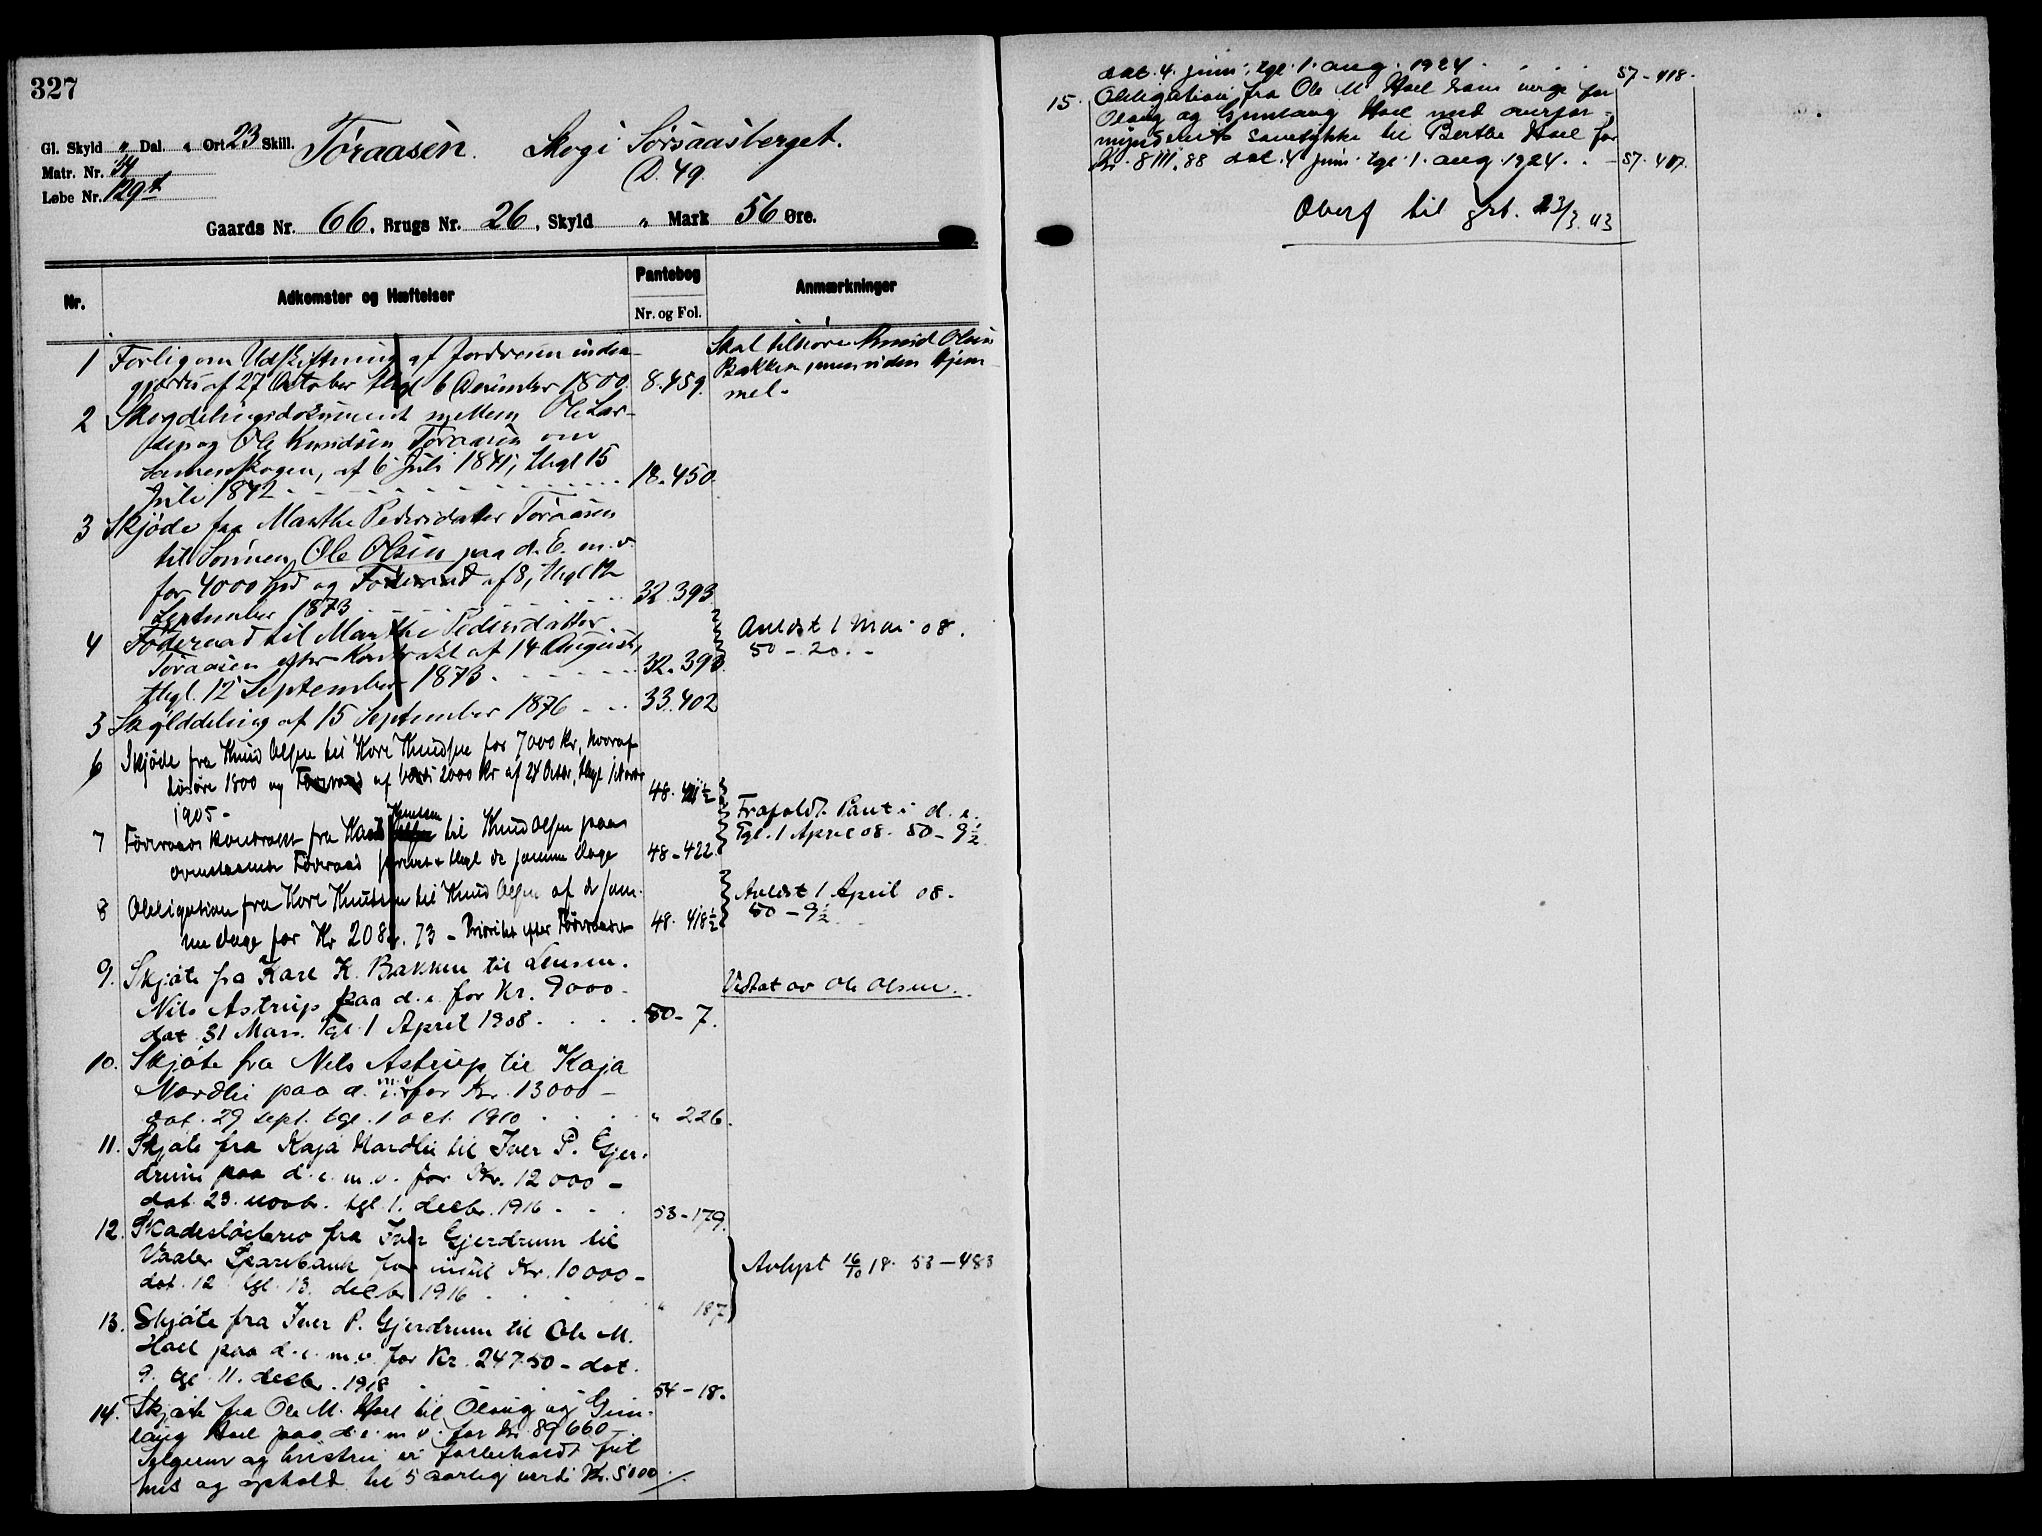 327
Gl. Skyld „ Dal. „ Ort 23 Skill. Toraasen. Skog i Sorsaasberget.
Matr. Nr. 34
D. 49.
Løbe Nr. 129
Gaards Nr. 66, Brugs Nr. 26, Skyld „ Mark 56 Øre.
Nr. Adkomster og Hæftelser Pantebog Anmærkninger
Nr. og Fol.
1 Forlig om Udskiftning af Jordveien
af 27 October thgl 6 December 1800. 8.459.
Skal tilhøre Knud Olsen
Bakken, men uden Hjem
mel.
2 Skogdelingsdokument mellem Ole Lar-
sen og Ole Knudsen Toraasen om
Sameieskogen, af 6 Juli 1841, thgl 15
Juli 1842 18.450.
3 Skjøde fra Marthe Pedersdatter Toraasen
til Sønnen Ole Olsen paa d. E. m. v.
for 4000 Spd og Føderaad af 8, thgl 12
September 1873 32.393
4 Føderaad til Marthe Pedersdatter
Toraasen efter Kontrakt af 14 August,
thgl. 12 September 1873. 32.393.
Avlæst 1 Mai 08.
50 - 20. -
5 Skylddeling af 15 September 1876 33.402
6 Skjøde fra Knud Olsen til Kore Knudsen for 7000 Kr, hvoraf
Løsøre 1800 og Føderaad af værdi 2000 Kr af 24 Octbr, thgl 1 Novbr
1905 -
7 Føderaadskontrakt fra Kaare Knudsen til Knud Olsen paa
ovenstaaende Føderaad thgl de samme Dage 48-422.
Frafaldt Pant i d. e.
Tgl. 1 April 08. 50 - 9½
8 Obligation fra Kore Knudsen til Knud Olsen af de sam-
me Dage for Kr 208 . 73 - Prioritet efter Føderaadet 48. 418½
Avlæst 1 April 08.
50 - 9½
9. Skjøte fra Kare K. Bakken til Lensm.
Nils Astrup paa d. e. for Kr. 9000
dat. 31 Mars. Tgl. 1 April 1908. 50-7.
Vedtat av Ole Olsen.
10. Skjøte fra Nils Astrup til Kaja
Nordli paa d. e. m. v. for Kr. 13000 -
dat. 29 sept. tgl. 1 oct. 1910 " 226.
11. Skjøte fra Kaja Nordli til Iver P. Gjer-
drum paa d. e. m. v. for Kr. 12000 -
dat. 23. novbr. tgl. 1. decbr. 1916 - 53-179.
12. Skadesløsbrev fra Iver Gjerdrum til
Vaaler Sparebank for indtil Kr. 10000 -
dat. 12 tgl. 13. decbr 1916 " 187
Avlyst 16/10 18. 53 - 483
13. Skjøte fra Iver P. Gjerdrum til Ole M.
Hoel paa d. e. m. v. for Kr. 24750 - dat.
9. tgl. 11. decbr. 1918 54 - 18.
14. Skjøte fra Ole M. Hoel til Olaug og Gun-
laug Hoel paa d. e. m. v. for Kr. 89660 -
Selgeren og hustru er forbeholdt frit
hus og ophold til 5 aarlig verdi Kr. 5000
dat. 4. juni, tgl. 1. aug. 1924. 57-418.
15. Obligation fra Ole M. Hoel som verge for
Olaug og Gunlaug Hoel med overfor-
mynderiets samtykke til Berthe Hoel for
Kr. 8111.88 dat. 4 juni tgl. 1. aug. 1924. - 57. 417.
Overf til grb. 23/3. 43